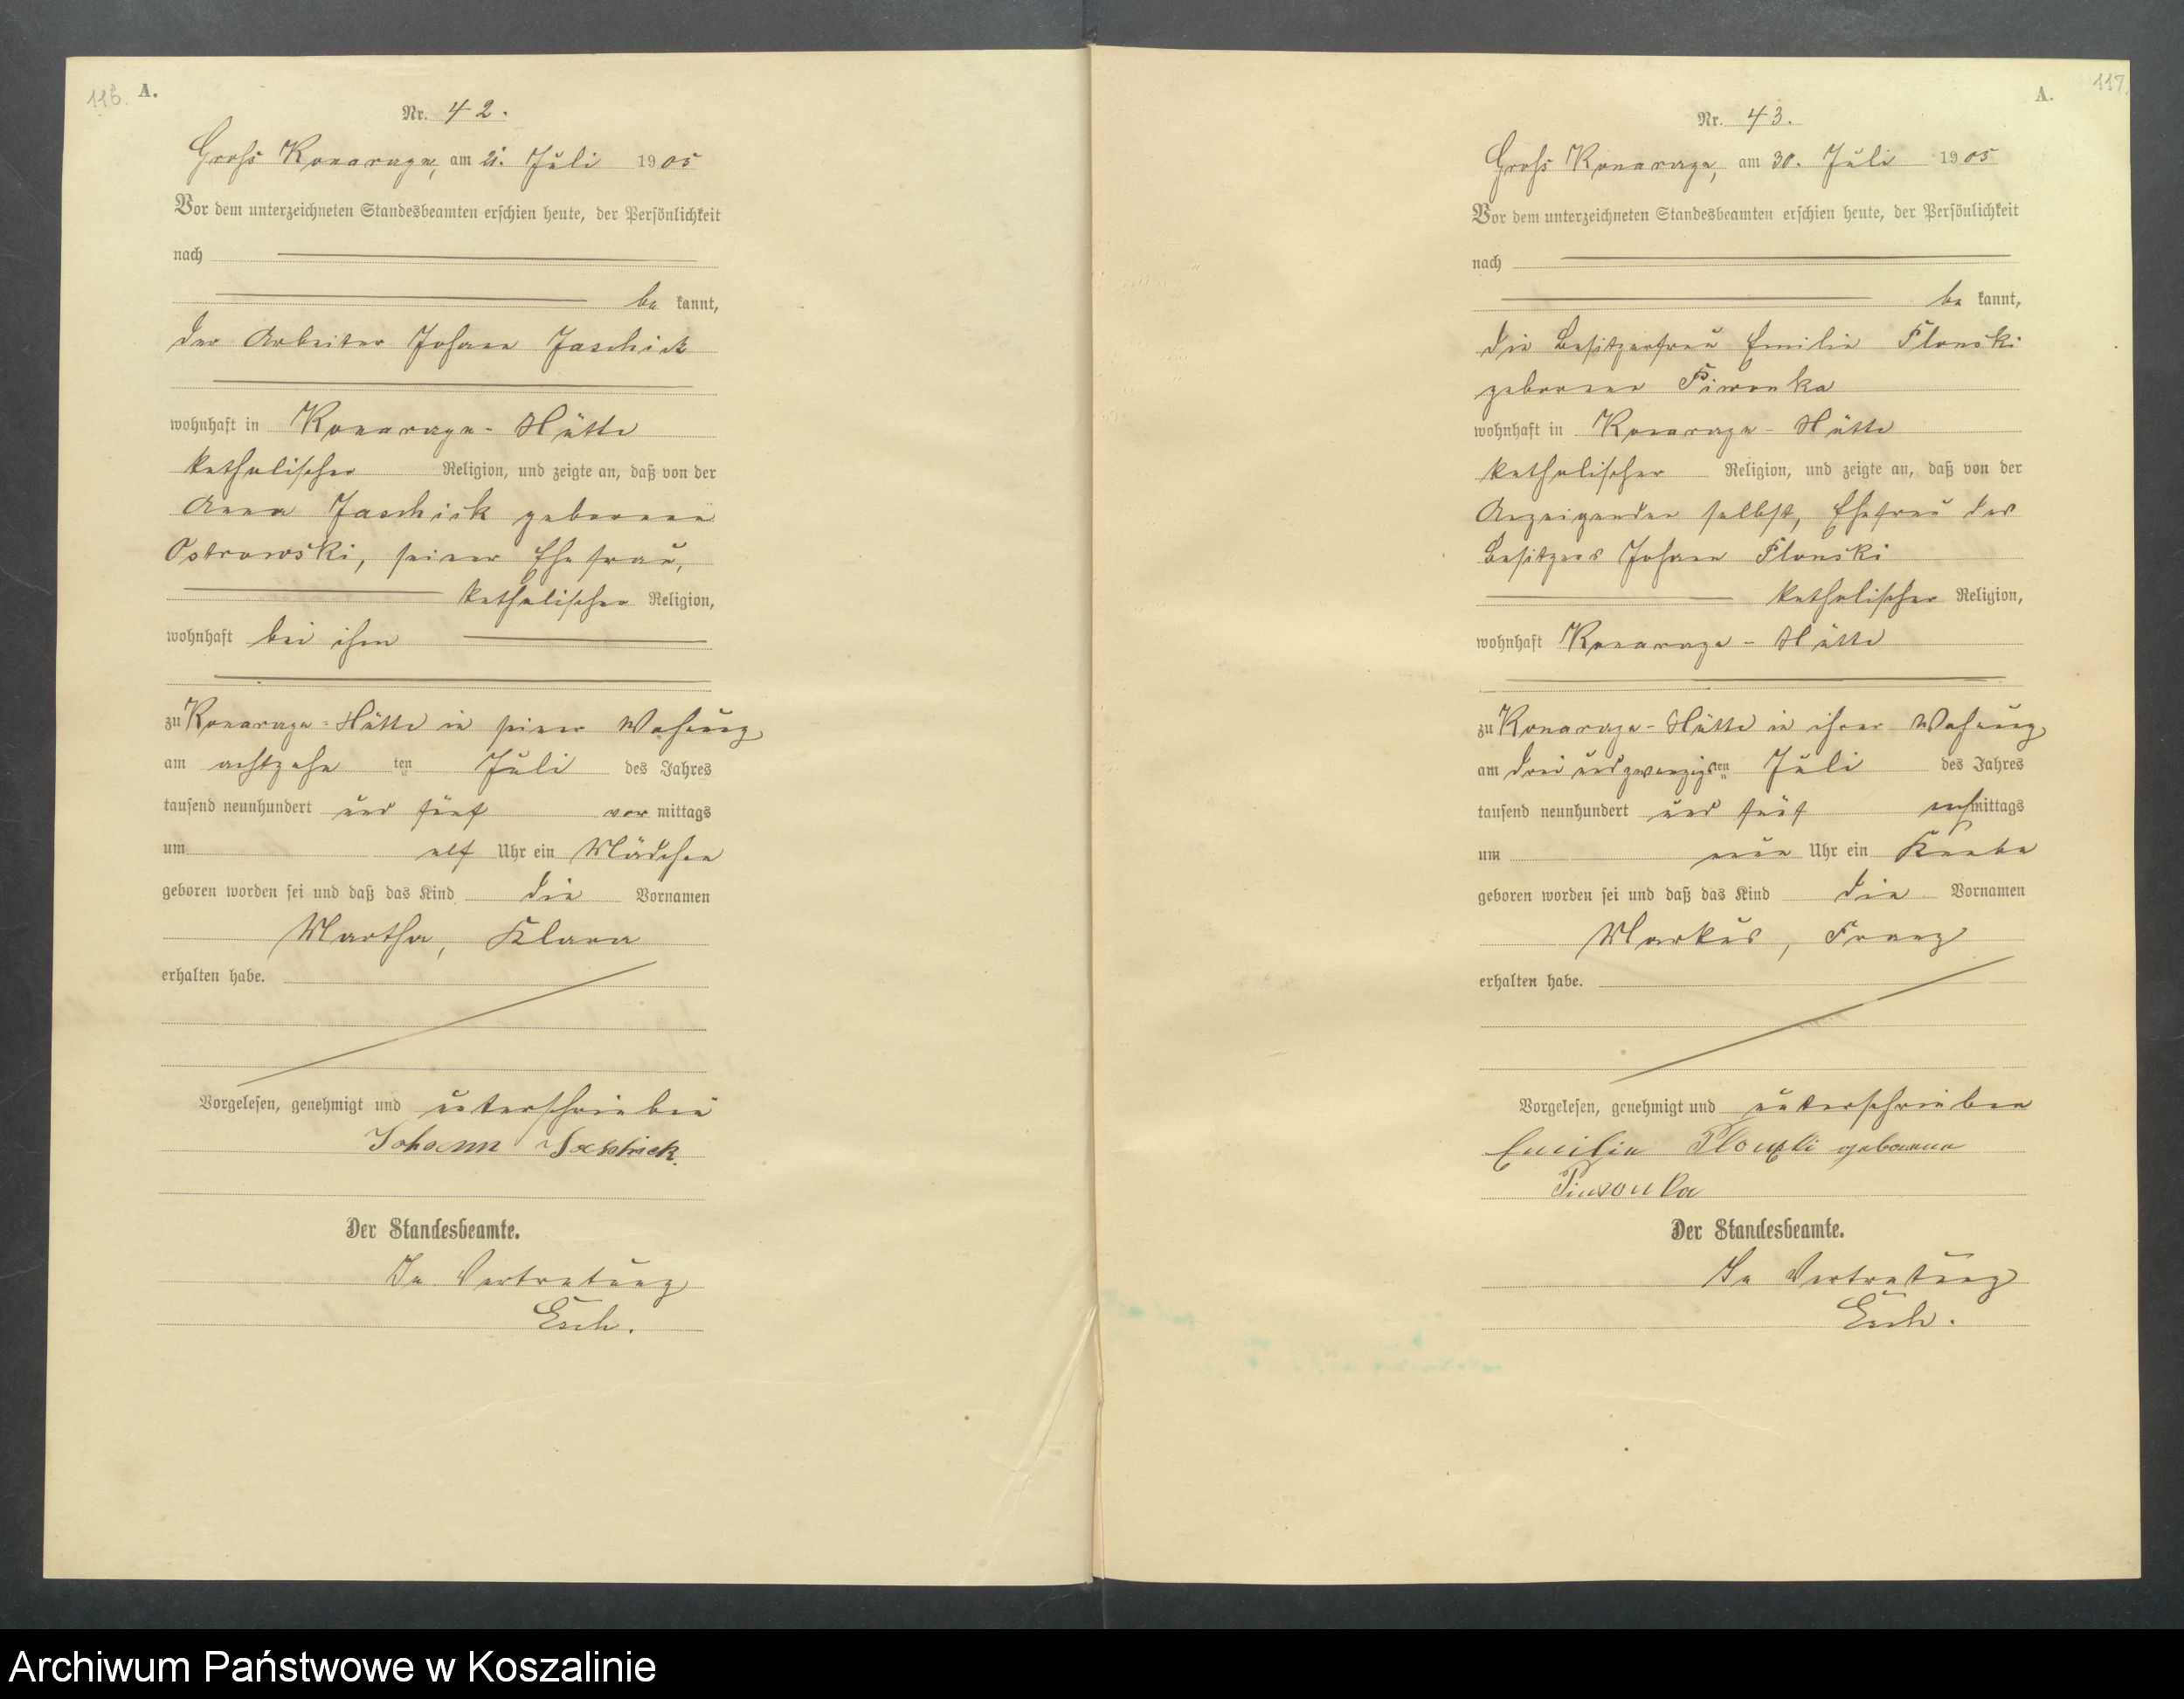 116.
A.
Nr. 42.
Gross Konarzyn, am 21. Juli 1905
Vor dem unterzeichneten Standesbeamten erschien heute, der Persönlichkeit
nach
be kannt,
der Arbeiter Johann Jaschick
wohnhaft in Konarzyn-Hütte
katholischer Religion, und zeigte an, daß von der
Anna Jaschick geborenen
Ostrowski, seiner Ehefrau,
katholischer Religion,
wohnhaft bei ihm
zu Konarzyn-Hütte in seiner Wohnung
am achtzehn ten Juli des Jahres
tausend neunhundert und fünf vor mittags
um elf Uhr ein Mädchen
geboren worden sei und daß das Kind die Vornamen
Martha, Klara
erhalten habe.
Vorgelesen, genehmigt und unterschrieben
Johann Jaschick.
Der Standesbeamte.
In Vertretung
Esch.
117.
A.
Nr. 43.
Gross Konarzyn, am 30. Juli 1905
Vor dem unterzeichneten Standesbeamten erschien heute, der Persönlichkeit
nach
be kannt,
die Besitzerfrau Emilie Plonski
geborene Piwonka
wohnhaft in Konarzyn-Hütte
katholischer Religion, und zeigte an, daß von der
Anzeigenden selbst, Ehefrau des
Besitzers Johann Plonski
katholischer Religion,
wohnhaft Konarzyn-Hütte
zu Konarzyn-Hütte in ihrer Wohnung
am drei und zwanzigsten Juli des Jahres
tausend neunhundert und fünf nachmittags
um neun Uhr ein Knabe
geboren worden sei und daß das Kind die Vornamen
Markus, Franz
erhalten habe.
Vorgelesen, genehmigt und unterschrieben
Emilie Plonski geborene
Piwonka
Der Standesbeamte.
In Vertretung
Esch.
Archiwum Państwowe w Koszalinie